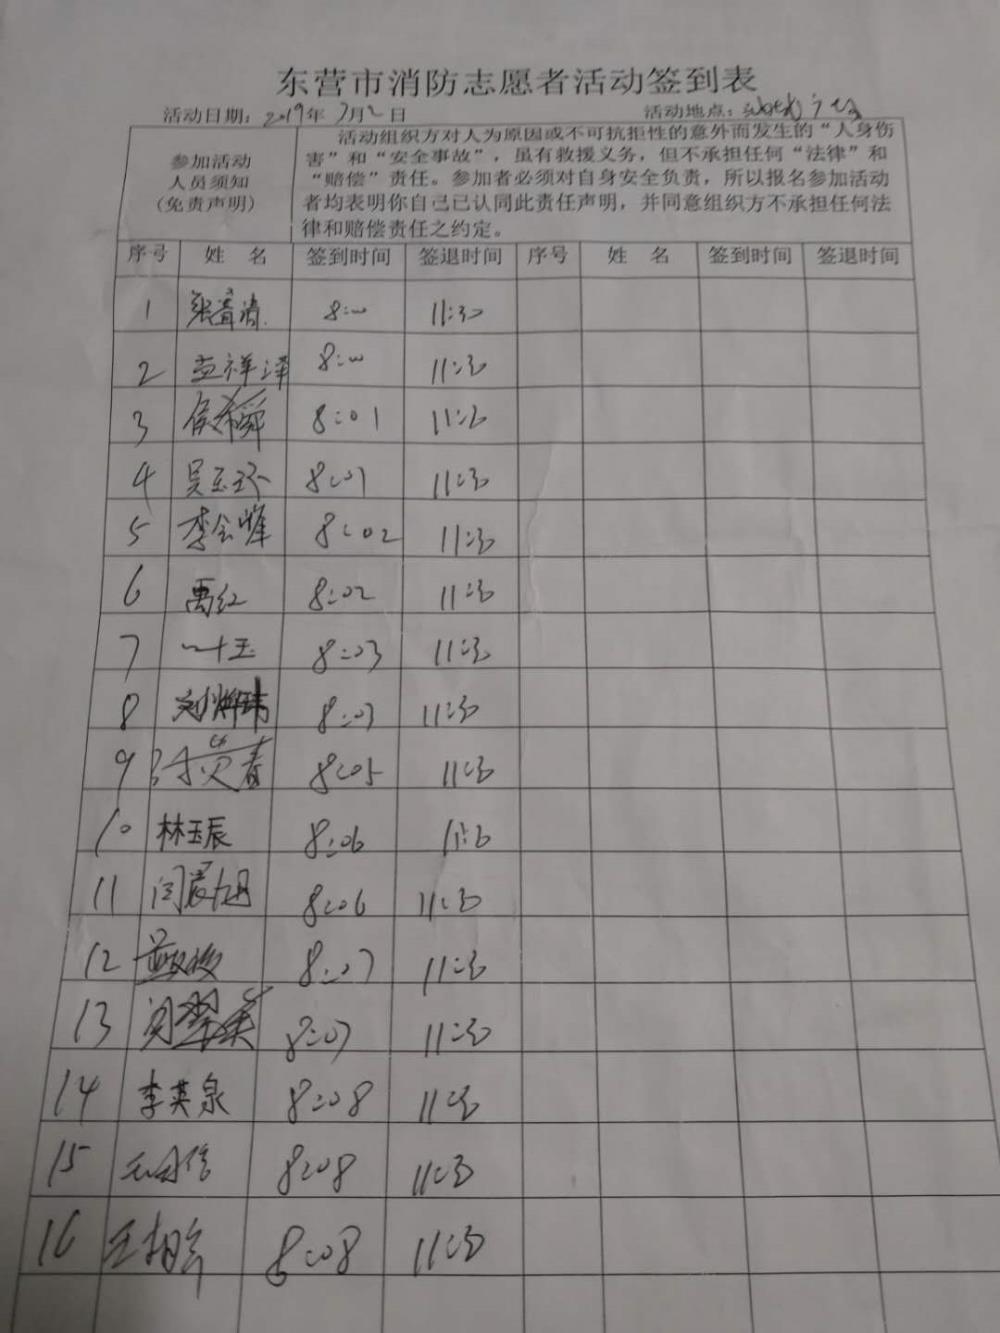 东营市消防志愿者活动签到表
活动日期：2019年7月2日 活动地点：
参加活动
人员须知
(免责声明)
活动组织方对人为原因或不可抗拒性的意外而发生的“人身伤
害”和“安全事故”，虽有救援义务，但不承担任何“法律”和
“赔偿”责任。参加者必须对自身安全负责，所以报名参加活动
者均表明你自己已认同此责任声明，并同意组织方不承担任何法
律和赔偿责任之约定。
序号 姓 名 签到时间 签退时间 序号 姓 名 签到时间 签退时间
1 8:00 11:30
2 孟祥泽 8:00 11:30
3 8:01 11:30
4 吴玉环 8:01 11:30
5 李会峰 8:02 11:30
6 禹红 8:02 11:30
7 8:03 11:30
8 8:03 11:30
9 8:05 11:30
10 林玉辰 8:06 11:30
11 闫晨旭 8:06 11:30
12 8:07 11:30
13 8:07 11:30
14 李英泉 8:08 11:30
15 8:08 11:30
16 8:08 11:30